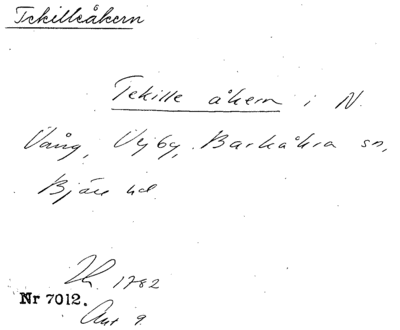 Tekilleåkern
Tekille åkern i N.
Vång, Vejby, Barkåkra sn,
Bjäre hd.
1782
Nr 7012.
Akt 9.